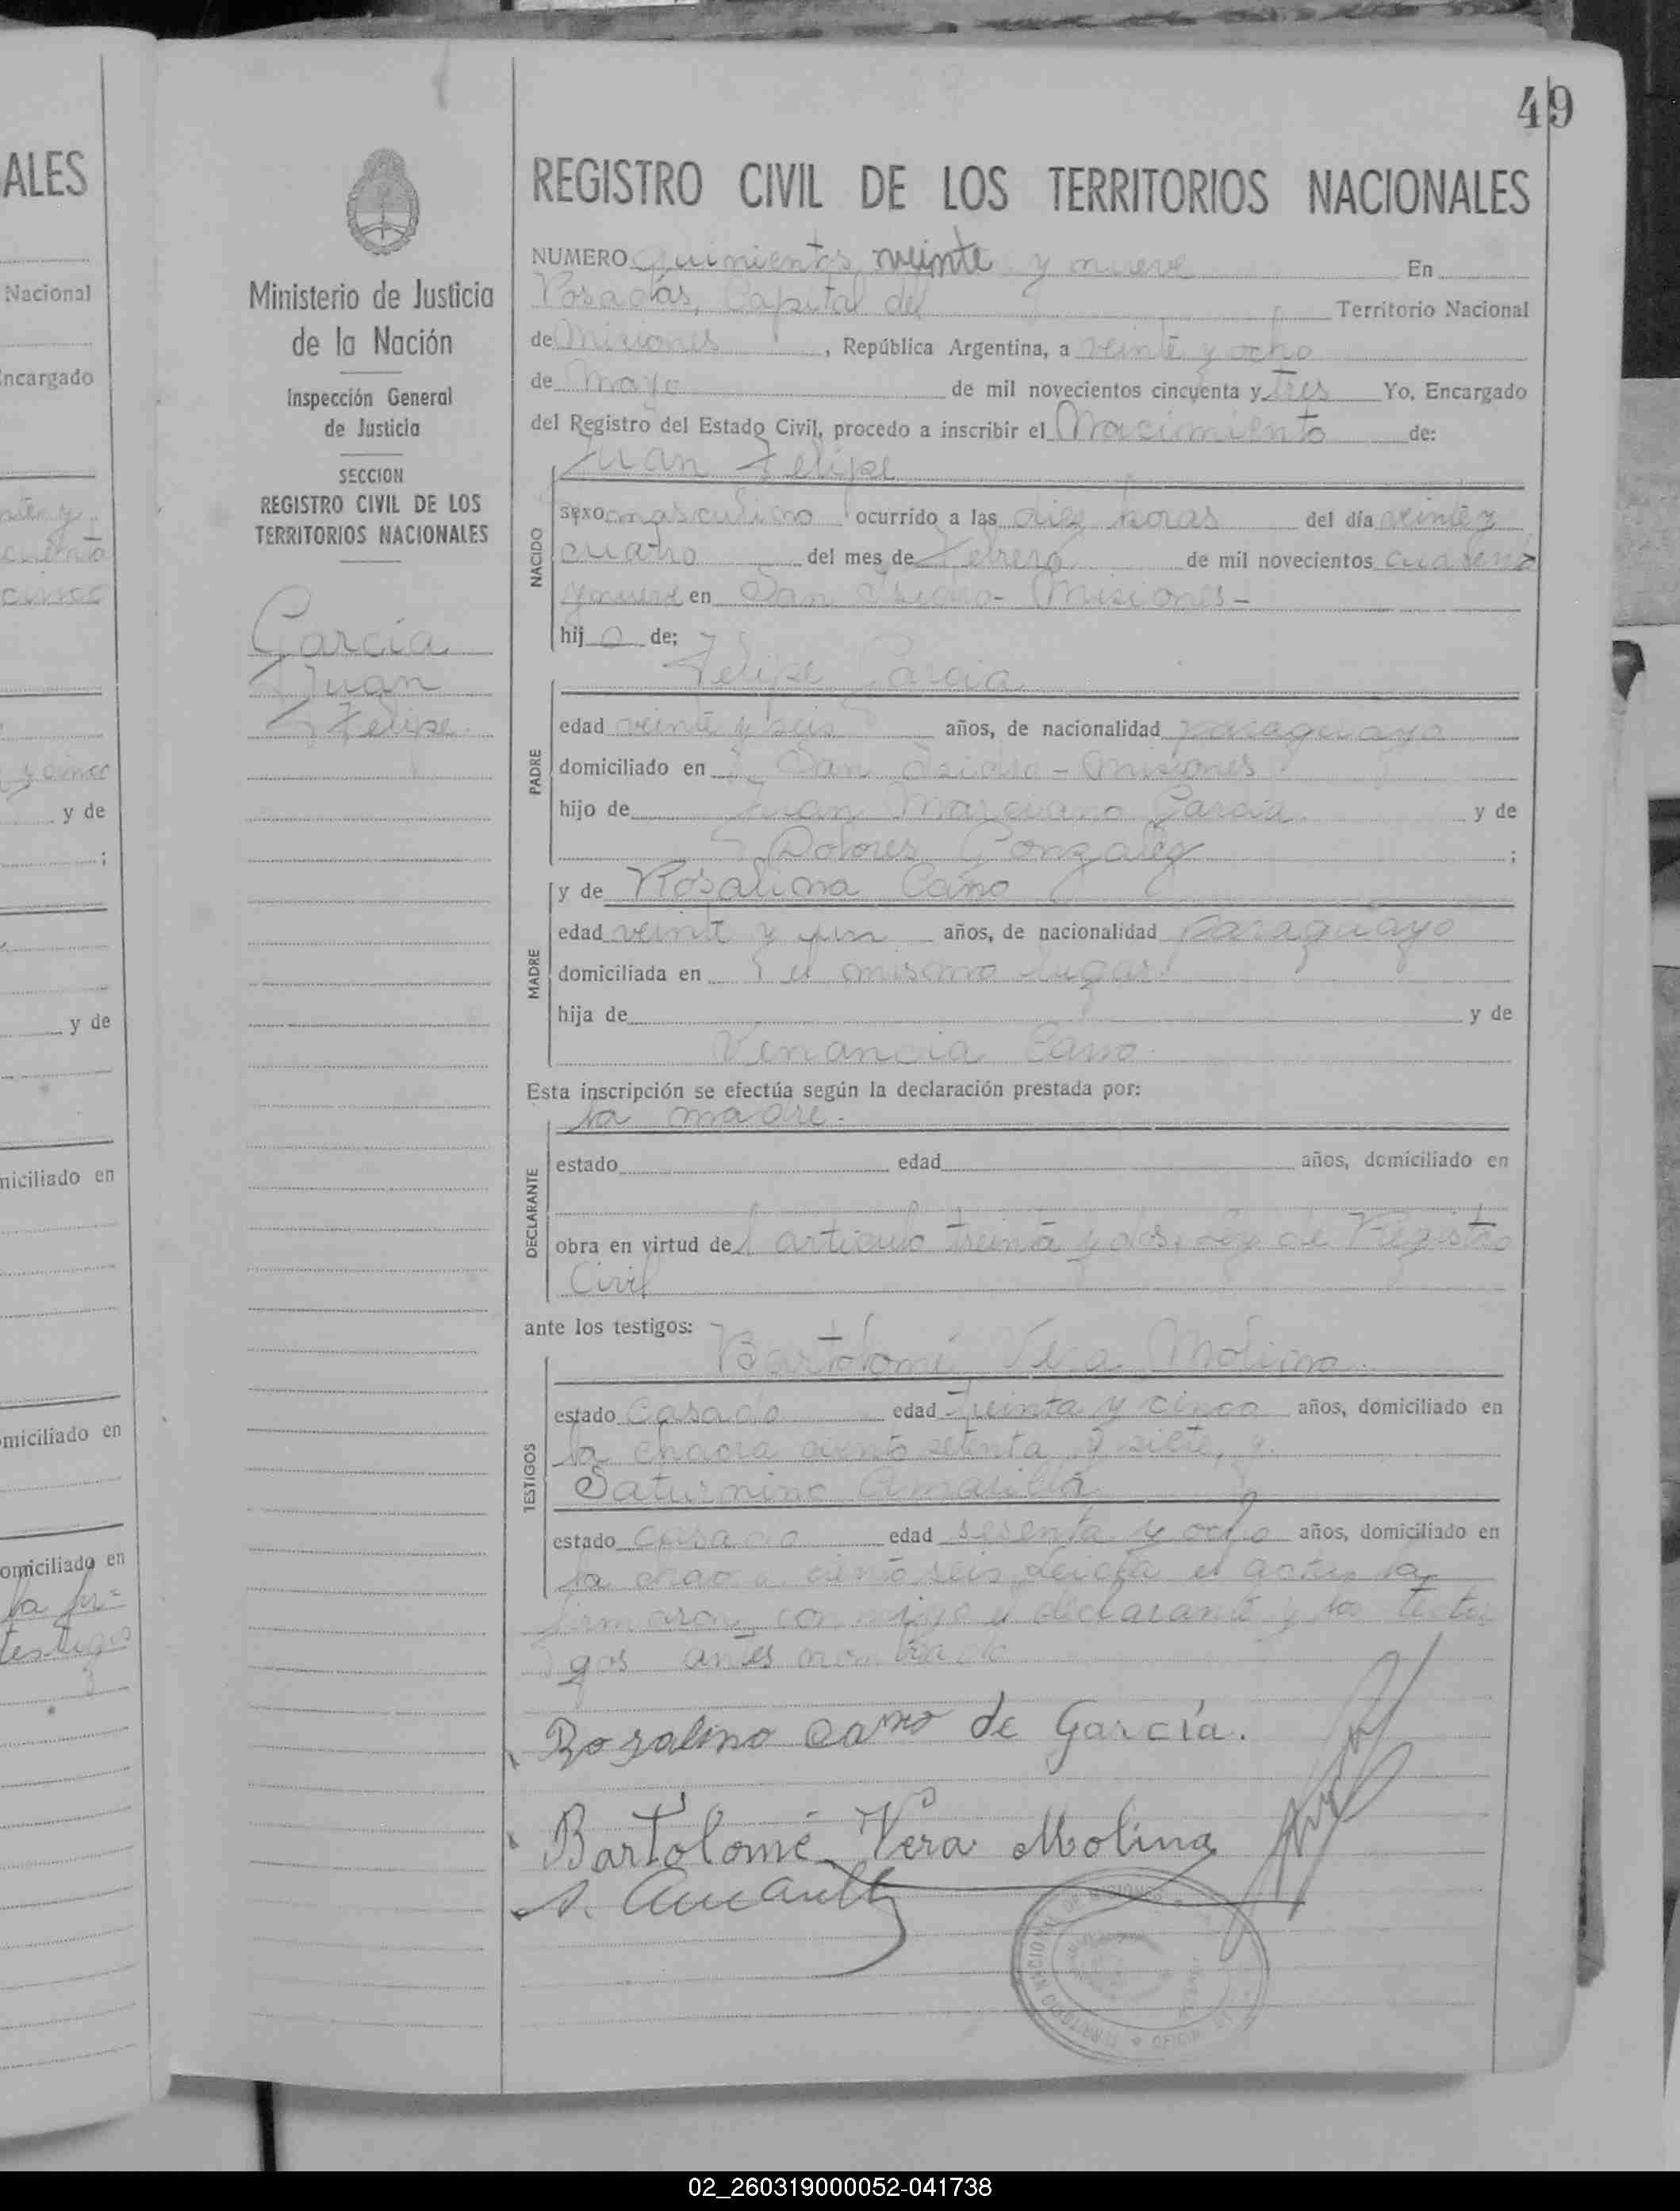 49
ALES
Nacional
Encargado
y de
y de
miciliado en
omiciliado en
omiciliado en
testigos
Ministerio de Justicia
de la Nación
Inspección General
de Justicia
SECCION
REGISTRO CIVIL DE LOS
TERRITORIOS NACIONALES
Garcia
Juan
Felipe.
REGISTRO CIVIL DE LOS TERRITORIOS NACIONALES
NUMERO Quinientos veinte y nueve En
Posadas, Capital del Territorio Nacional
de Misiones, República Argentina, a veinte y ocho
de Mayo de mil novecientos cincuenta y tres Yo, Encargado
del Registro del Estado Civil, procedo a inscribir el Nacimiento de:
Juan Felipe
NACIDO
sexo masculino ocurrido a las diez horas del día veinte y
cuatro del mes de Febrero de mil novecientos cuarenta
y nueve en San Isidro - Misiones -
hijo de:
Felipe Garcia
PADRE
edad veinte y seis años, de nacionalidad paraguayo
domiciliado en San Isidro - Misiones
hijo de Juan Marciano Garcia y de
Dolores Gonzalez ;
y de Rosalina Cano
MADRE
edad veinte y un años, de nacionalidad Paraguayo
domiciliada en el mismo lugar.
hija de y de
Venancia Cano.
Esta inscripción se efectúa según la declaración prestada por:
la madre.
DECLARANTE
estado edad años, domiciliado en
obra en virtud del articulo treinta y dos, Ley de Registro
Civil
ante los testigos:
Bartolomé Vera Molina
TESTIGOS
estado Casado edad treinta y cinco años, domiciliado en
la chacra ciento setenta y siete, y
Saturnino Amarilla
estado casado edad sesenta y ocho años, domiciliado en
la chacra ciento seis Leida el acta la
firmaron conmigo el declarante y los testi
gos antes nombrado
Rosalino Cano de García.
Bartolomé Vera Molina
S. Amarilla
02_260319000052-041738